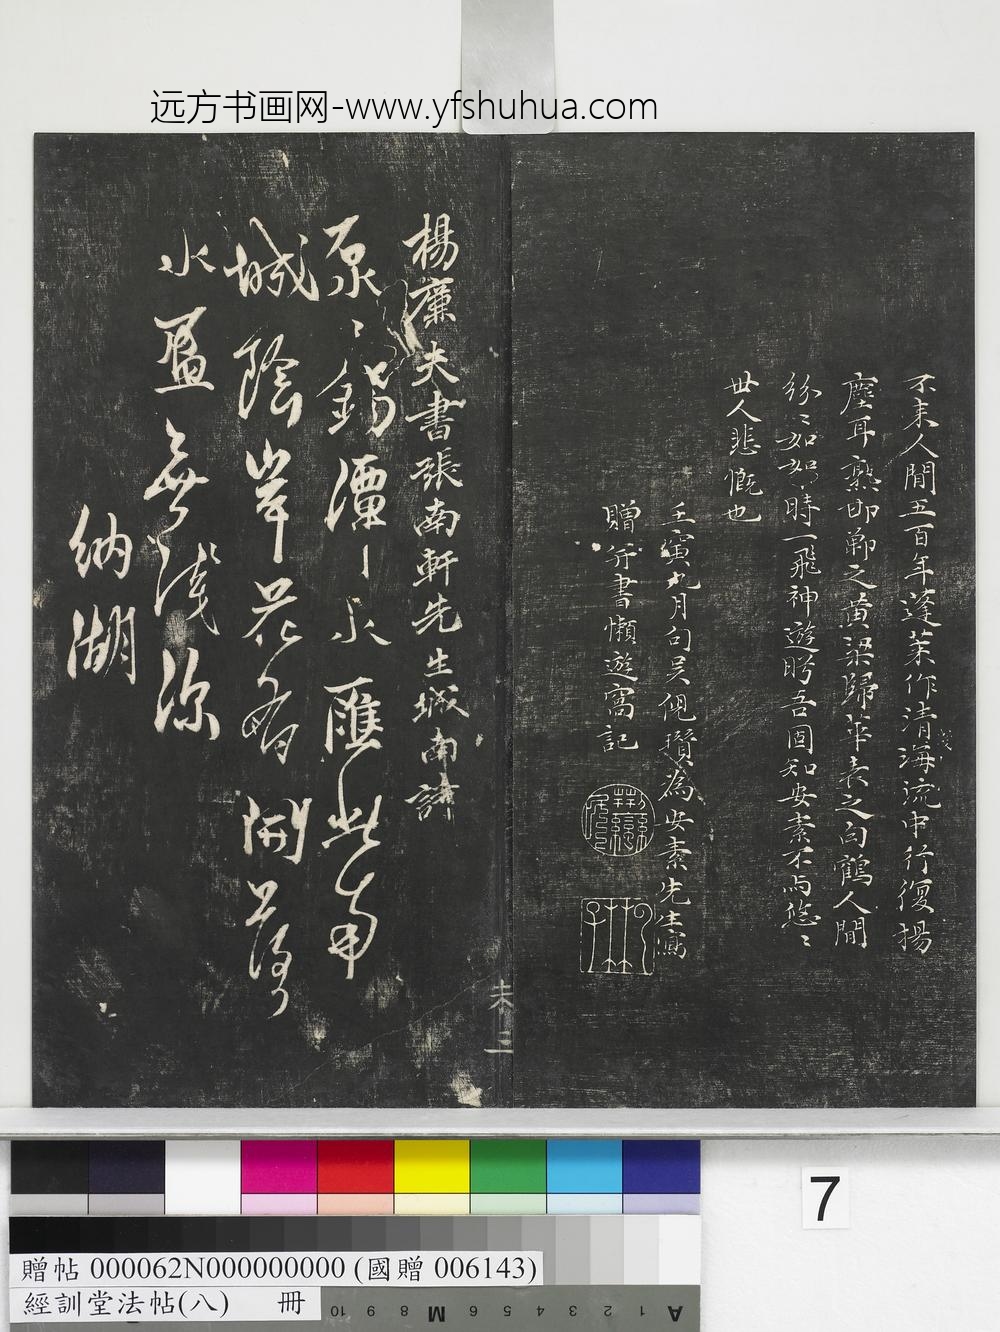 远方书画网-www.yfshuhua.com
不来人間五百年蓬莱作清海流中行復揚
淺
塵耳熟邯鄲之黄梁歸華表之白鶴人間
紛〻如如時一飛神遊眄吾固知安素不与悠〻
世人悲慨也
壬寅九月句吴倪瓚為安素先生寫
贈行書懶遊窩記
楊廉夫書張南軒先生城南詩
原〻錫潭〻水匯此南
城陰岸花有開落
水盈無淺深
納湖
未三
7
贈帖 000062N000000000 (國贈 006143)
經訓堂法帖(八) 冊
10 9 8 M 6 5 4 3 2 1 A